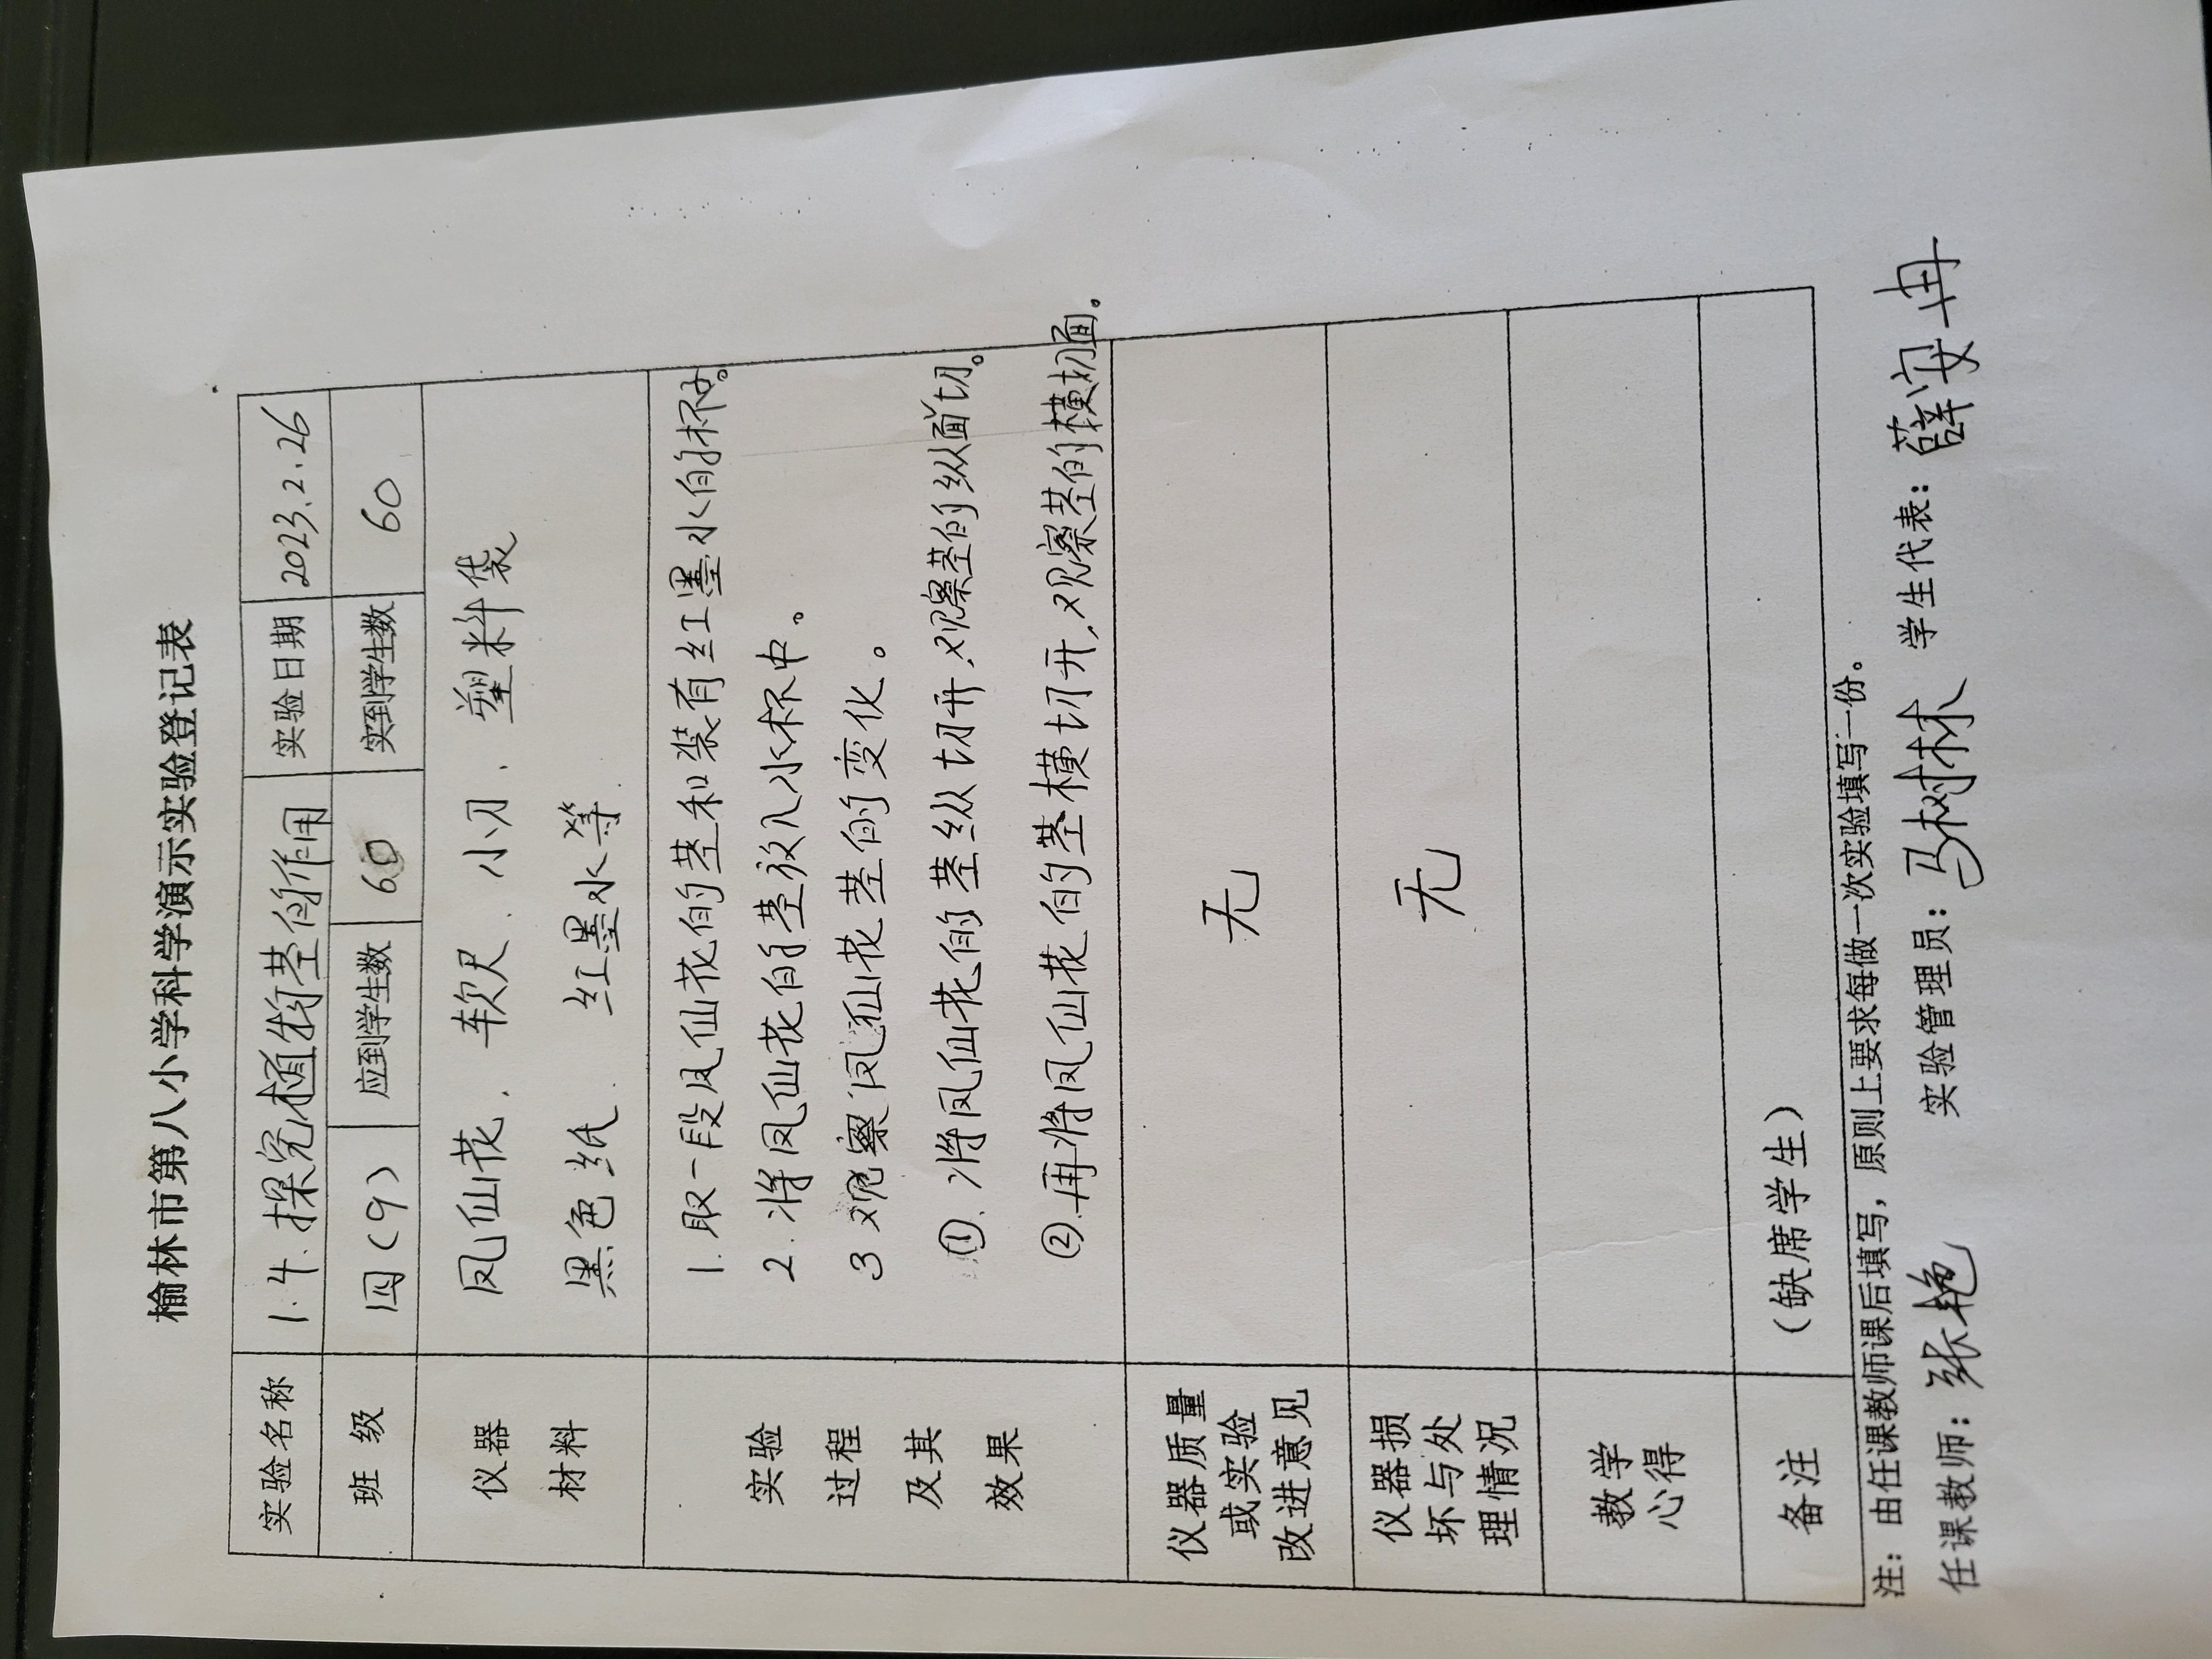 榆林市第八小学科学演示实验登记表
实验名称 1.4.探究植物茎的作用 实验日期 2023.2.26
班 级 四(9) 应到学生数 60 实到学生数 60
仪器 凤仙花、软尺、小刀、塑料袋
材料 黑色纸、红墨水等
实验 1.取一段凤仙花的茎和装有红墨水的杯子。
过程 2.将凤仙花的茎放入水杯中。
及其 3观察凤仙花茎的变化。
效果 ①、将凤仙花的茎纵切开,观察茎的纵面切。
②.再将凤仙花的茎横切开,观察茎的横切面。
仪器质量
或实验 无
改进意见
仪器损
坏与处 无
理情况
教学
心得
备注 (缺席学生)
注:由任课教师课后填写,原则上要求每做一次实验填写一份。
任课教师:张艳 实验管理员:马树林 学生代表:薛安冉